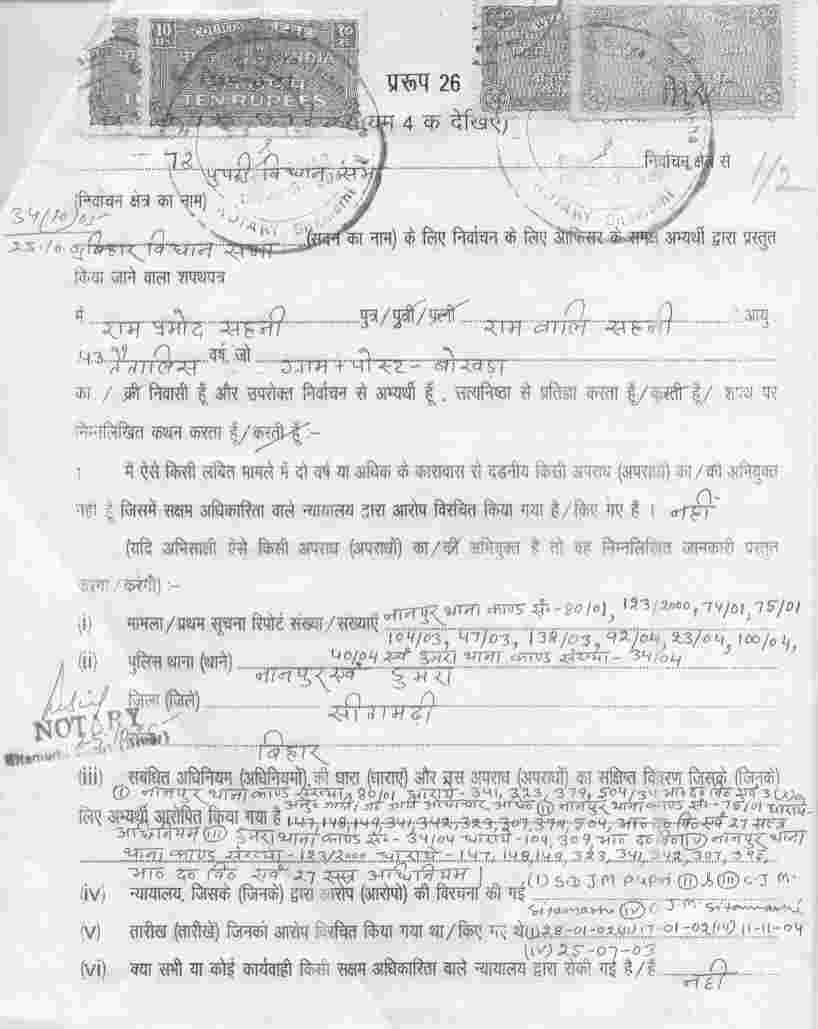 10 रु० भारत INDIA १० रु०
TEN RUPEES
प्ररूप 26
नियम 4 क देखिए)
72 पुपरी विधान सभा निर्वाचन क्षेत्र से
1/2
(निर्वाचन क्षेत्र का नाम)
बिहार विधान सभा (सदन का नाम) के लिए निर्वाचन के लिए आफिसर के समक्ष अभ्यर्थी द्वारा प्रस्तुत
किया जाने वाला शपथपत्र
मैं राम प्रमोद सहनी पुत्र/पुत्री/पत्नी राम वालि सहनी आयु
43 तैतालिस वर्ष, जो ग्राम+पोस्ट- बोखड़ा
का / की निवासी हूँ और उपरोक्त निर्वाचन से अभ्यर्थी हूँ , सत्यनिष्ठा से प्रतिज्ञा करता हूँ/करती हूँ/ शपथ पर
निम्नलिखित कथन करता हूँ/करती हूँ :-
1 मैं ऐसे किसी लंबित मामले में दो वर्ष या अधिक के कारावास से दंडनीय किसी अपराध (अपराधों) का/की अभियुक्त
नहीं हूँ जिसमें सक्षम अधिकारिता वाले न्यायालय द्वारा आरोप विरचित किया गया है/किए गए हैं । नहीं
(यदि अभिसाक्षी ऐसे किसी अपराध (अपराधों) का/की अभियुक्त है तो वह निम्नलिखित जानकारी प्रस्तुत
करेगा/करेगी) :-
(i) मामला/प्रथम सूचना रिपोर्ट संख्या/संख्याएँ नानपुर थाना काण्ड सं०-80/01, 123/2000, 74/01, 75/01
104/03, 47/03, 138/03, 92/04, 23/04, 100/04,
40/04 एवं डुमरा थाना काण्ड संख्या- 34/04
(ii) पुलिस थाना (थाने) नानपुर एवं डुमरा
जिला (जिले) सीतामढ़ी
NOTARY
बिहार
(iii) संबंधित अधिनियम (अधिनियमों) की धारा (धाराएँ) और उस अपराध (अपराधों) का संक्षिप्त विवरण जिसके (जिनके)
(i) नानपुर थाना काण्ड संख्या, 80/01 धाराएं- 341, 323, 379, 504/34 भा० द० वि० एवं 3
(ii) नानपुर थाना काण्ड सं०- 75/01 धाराएं-
लिए अभ्यर्थी आरोपित किया गया है 147, 148, 149, 341, 342, 323, 307, 379, 504, भा० द० वि० एवं 27 सस्त्र
अधिनियम (iii) डुमरा थाना काण्ड सं०- 34/04 धाराएं- 309, भा० द० वि० (iv) नानपुर थाना
थाना काण्ड संख्या- 123/2000 धाराएं- 147, 148, 149, 323, 341, 342, 307,
भा० द० वि० एवं 27 सस्त्र अधिनियम।
(iv) न्यायालय, जिसके (जिनके) द्वारा आरोप (आरोपों) की विरचना की गई (i) SDJM Pupri (ii) & (iii) C.J.M.
Sitamarhi (iv) C.J.M. Sitamarhi
(v) तारीख (तारीखें) जिनको आरोप विरचित किया गया था/किए गए थे (i) 28-01-02 (ii) 17-01-02 (iii) 11-11-04
(iv) 25-07-03
(vi) क्या सभी या कोई कार्यवाही किसी सक्षम अधिकारिता वाले न्यायालय द्वारा रोकी गई है/हैं नहीं